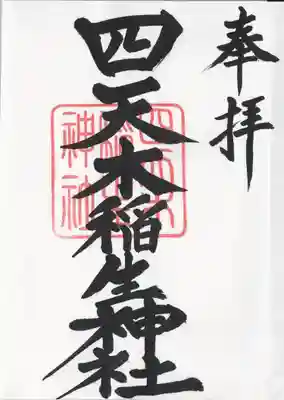 奉拝
四天木稲生神社